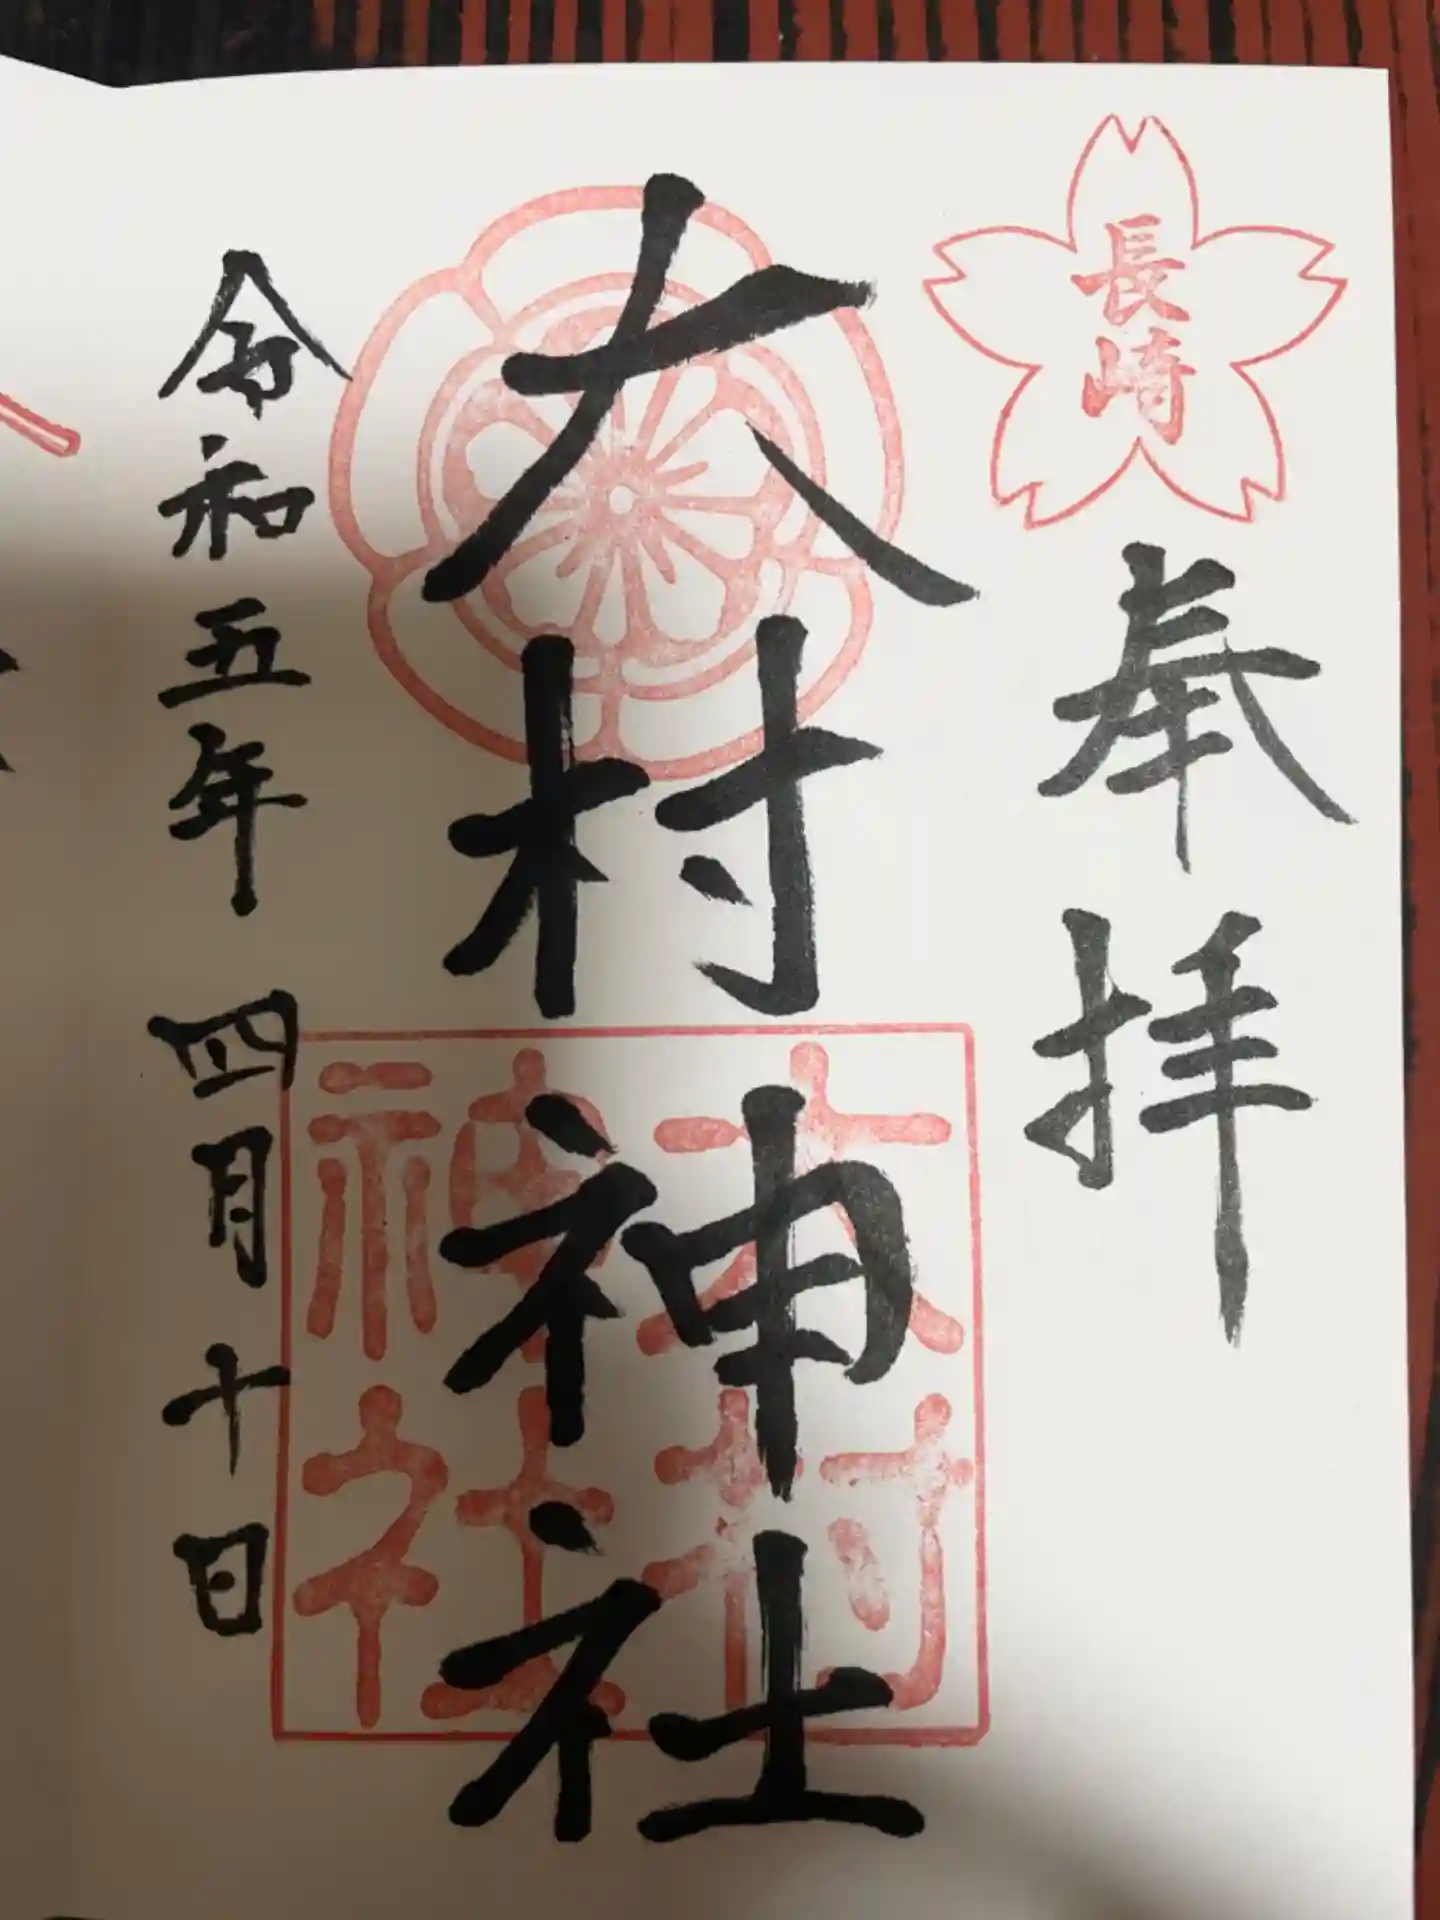 長崎
奉拝
大村神社
大村神社
令和五年四月十日